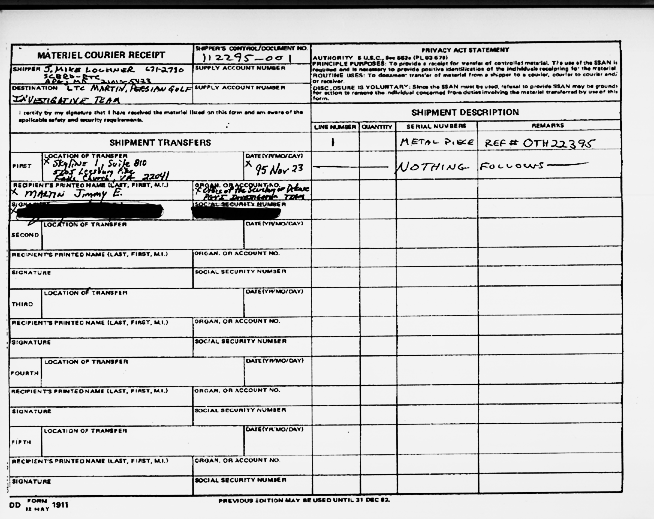 MATERIEL COURIER RECEIPT
SHIPPER'S CONTROL/DOCUMENT NO.
112295-001
PRIVACY ACT STATEMENT
AUTHORITY 5 U.S.C., Sec 552a (PL 93-579)
PRINCIPLE PURPOSES: To provide a receipt for transfer of controlled material. The use of the SSAN is
required and is necessary to provide positive identification of the individuals receipting for the material.
ROUTINE USES: To document transfer of material from a shipper to a courier, courier to courier and/
or receiver.
DISCLOSURE IS VOLUNTARY: Since the SSAN must be used, refusal to provide SSAN may be grounds
for action to remove the individual concerned from duties involving the material transferred by use of this
form.
SHIPPER J. MIKE LOCHNER 671-2790
SUPPLY ACCOUNT NUMBER
SCBRD-RTC
APG, MD 21010-5423
DESTINATION LTC MARTIN, PERSIAN GOLF
SUPPLY ACCOUNT NUMBER
INVESTIGATIVE TEAM
I certify by my signature that I have received the material listed on this form and am aware of the
applicable safety and security requirements.
SHIPMENT DESCRIPTION
LINE NUMBER QUANTITY SERIAL NUMBERS REMARKS
SHIPMENT TRANSFERS
1 METAL PIECE REF# OTH22395
FIRST
LOCATION OF TRANSFER
X Skyline 1, Suite 810
5205 Leesburg Pike
Falls Church, VA 22041
DATE(YR/MO/DAY)
X 95 Nov 23
NOTHING FOLLOWS
RECIPIENT'S PRINTED NAME (LAST, FIRST, M.I.)
X MARTIN Jimmy E.
ORGAN. OR ACCOUNT NO.
X Office of the Secretary of Defense
INVESTIGATION TEAM
SOCIAL SECURITY NUMBER
SECOND
LOCATION OF TRANSFER
DATE(YR/MO/DAY)
RECIPIENT'S PRINTED NAME (LAST, FIRST, M.I.)
ORGAN. OR ACCOUNT NO.
SIGNATURE
SOCIAL SECURITY NUMBER
THIRD
LOCATION OF TRANSFER
DATE(YR/MO/DAY)
RECIPIENT'S PRINTED NAME (LAST, FIRST, M.I.)
ORGAN. OR ACCOUNT NO.
SIGNATURE
SOCIAL SECURITY NUMBER
FOURTH
LOCATION OF TRANSFER
DATE(YR/MO/DAY)
RECIPIENT'S PRINTED NAME (LAST, FIRST, M.I.)
ORGAN. OR ACCOUNT NO.
SIGNATURE
SOCIAL SECURITY NUMBER
FIFTH
LOCATION OF TRANSFER
DATE(YR/MO/DAY)
RECIPIENT'S PRINTED NAME (LAST, FIRST, M.I.)
ORGAN. OR ACCOUNT NO.
SIGNATURE
SOCIAL SECURITY NUMBER
DD FORM 1911
MAY
PREVIOUS EDITION MAY BE USED UNTIL 31 DEC 82.